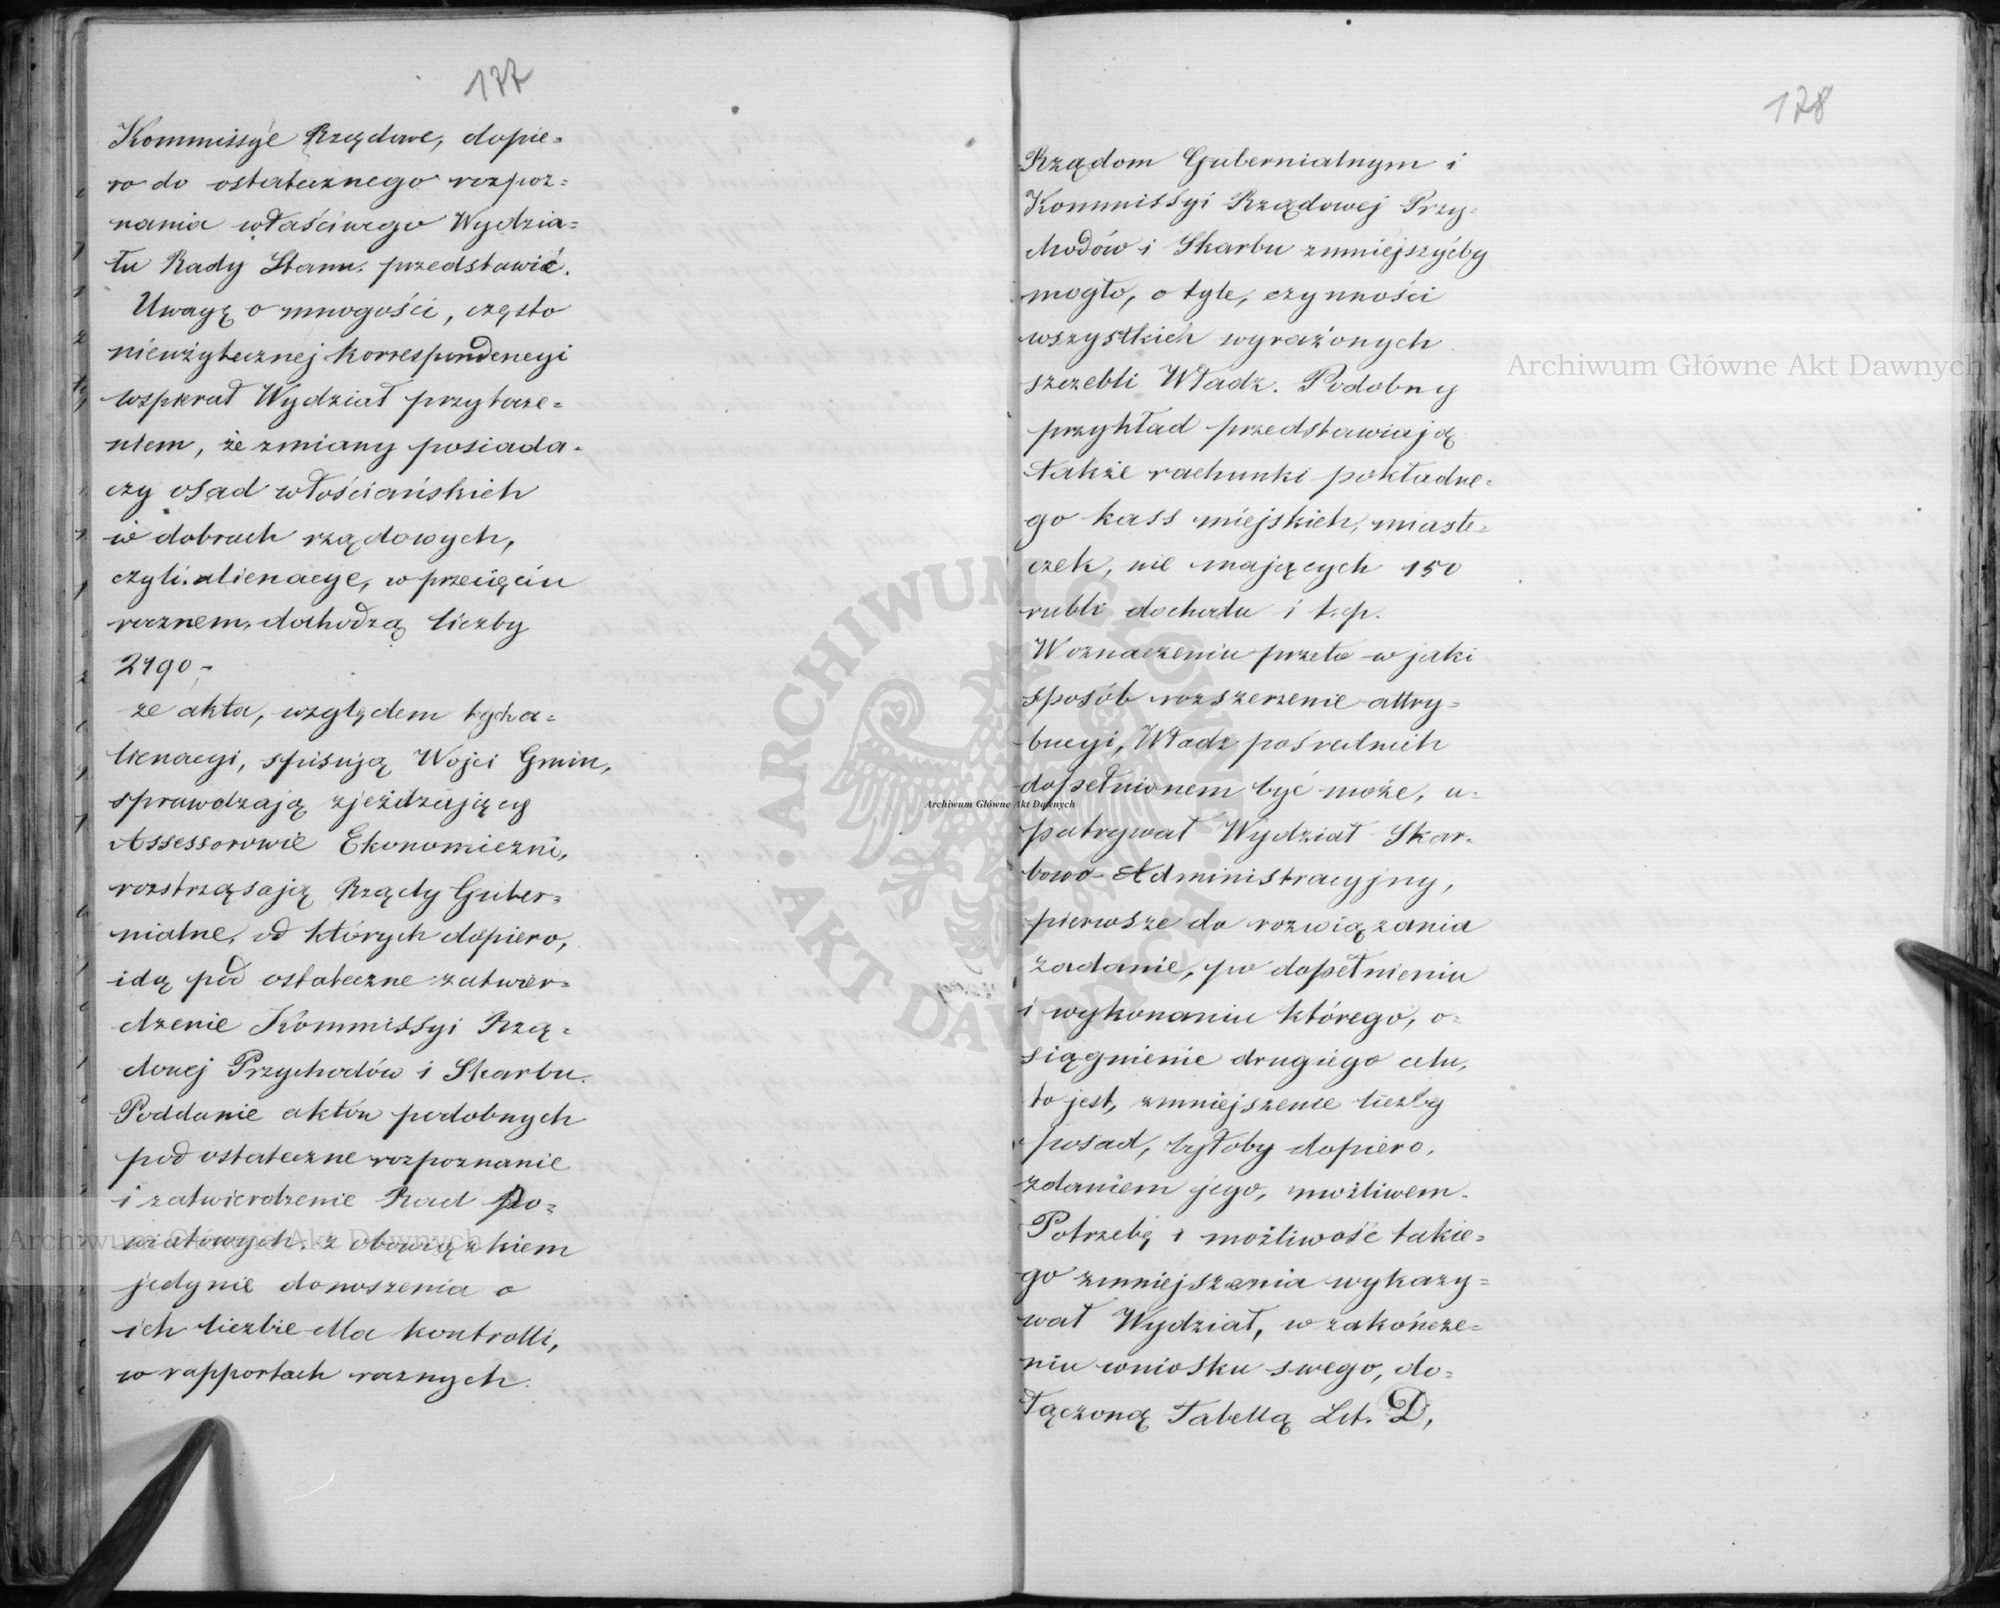 177
Kommissye Rządowe, dopie=
ro do ostatecznego rozpoz=
nania właściwego Wydzia=
łu Rady Stanu przedstawić.
Uwagę o mnogości, często
nieużytecznej korrespondencyi
wspierał Wydział przytocze=
niem, że zmiany posiada=
czy osad włościańskich
w dobrach rządowych,
czyli alienacye, w przecięciu
rocznem, dochodzą liczby
2190 -
że akta, względem tych a=
lienacyi, spisują Wójci Gmin,
sprawdzają zjeżdżający
Assessorowie Ekonomiczni,
roztrząsają Rządy Guber=
nialne, od których dopiero,
idą pod ostateczne zatwier=
dzenie Kommissyi Rzą=
dowej Przychodów i Skarbu.
Poddanie aktów podobnych
pod ostateczne rozpoznanie
i zatwierdzenie Rad Po=
wiatowych, z obowiązkiem
jedynie donoszenia o
ich liczbie dla kontrolli,
w rapportach rocznych
178
Rządom Gubernialnym i
Kommissyi Rządowej Przy=
chodów i Skarbu zmniejszyćby
mogło, o tyle, czynności
wszystkich wyrażonych
szczebli Władz. Podobny
przykład przedstawiają
także rachunki pokładne=
go kass miejskich, miaste=
czek, nie mających 150
rubli dochodu i t.p.
W oznaczeniu przeto w jaki
sposób rozszerzenie attry=
bucyi, Władz pośrednich
dopełnionem być może, u=
patrywał Wydział Skar=
bowo-Administracyjny,
pierwsze do rozwiązania
zadanie, po dopełnieniu
i wykonaniu którego, o=
siągnienie drugiego celu,
to jest, zmniejszenie liczby
posad, byłoby dopiero,
zdaniem jego, możliwem.
Potrzebę i możliwość takie=
go zmniejszenia wykazy=
wał Wydział, w zakończe=
niu wniosku swego, do=
łączoną Tabellą Lit. D,
Archiwum Główne Akt Dawnych
Archiwum Główne Akt Dawnych
Archiwum Główne Akt Dawnych
ARCHIWUM GŁÓWNE AKT DAWNYCH